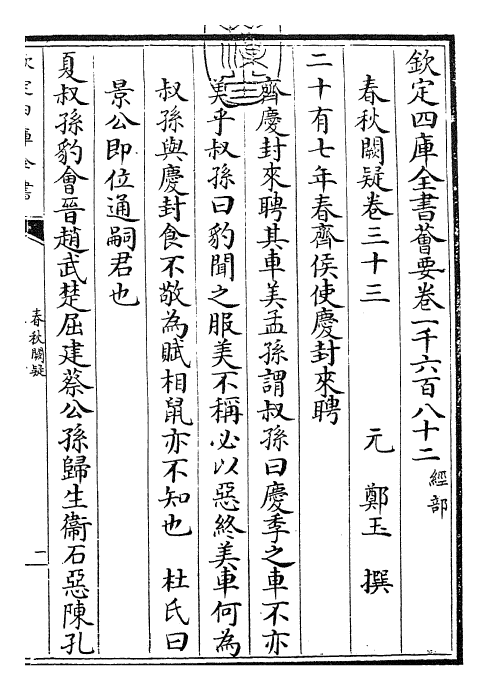 欽定四庫全書薈要卷一千六百八十二 經部
春秋闕疑卷三十三
元 鄭玉 撰
二十有七年春齊侯使慶封來聘
齊慶封來聘其車美孟孫謂叔孫曰慶季之車不亦
美乎叔孫曰豹聞之服美不稱必以惡終美車何為
叔孫與慶封食不敬為賦相鼠亦不知也 杜氏曰
景公即位通嗣君也
夏叔孫豹會晉趙武楚屈建蔡公孫歸生衞石惡陳孔
春秋闕疑